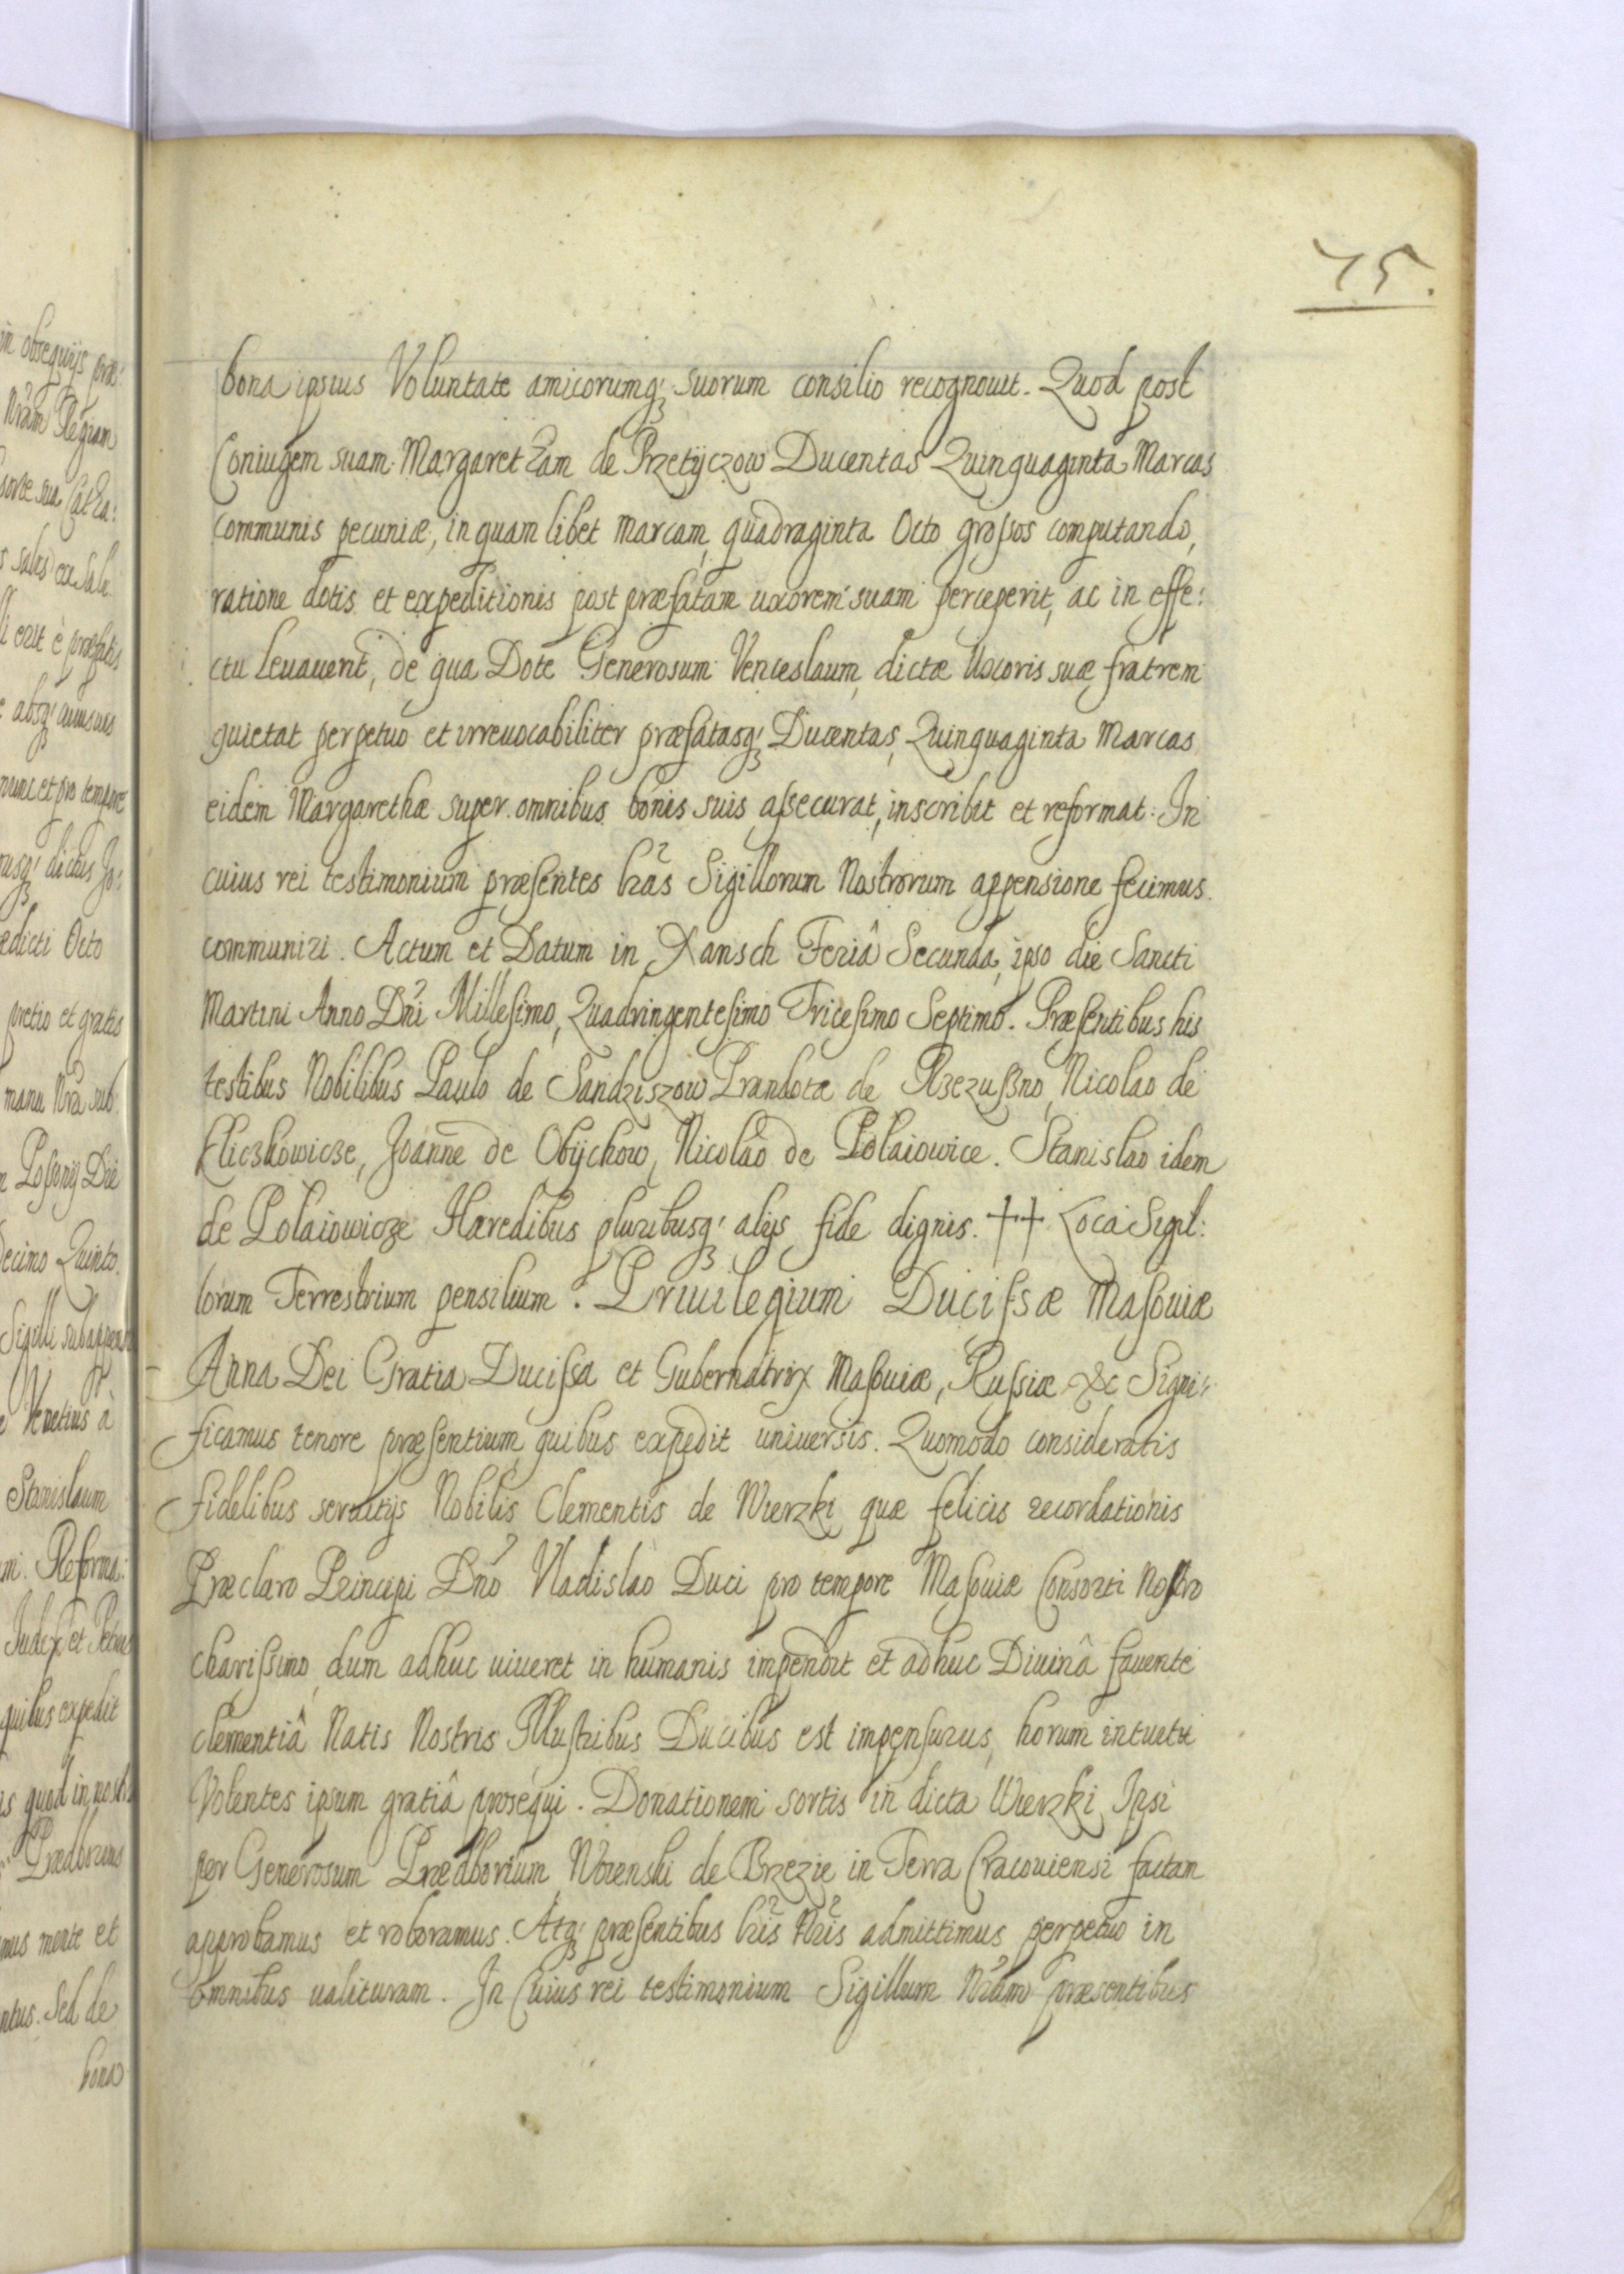 75.
bona ipsius Voluntate amicorumq; suorum consilio recognouit. Quod post
Coniugem suam Margaretham de Przetÿczow Ducentas Quinquaginta Marcas
communis pecuniæ, in quam libet Marcam, quadraginta Octo grossos computando,
ratione dotis et expeditionis post præfatam uxorem suam perceperit, ac in effe:
ctu leuauerit, de qua Dote Generosum Venceslaum, dictæ Uxoris suæ fratrem
quietat perpetuo et irreuocabiliter præfatasq; Ducentas, Quinquaginta Marcas
eidem Margarethæ super omnibus bonis suis assecurat, inscribit et reformat. In
cuius rei testimonium præsentes lras Sigillorum Nostrorum appensione fecimus
communiri. Actum et Datum in Xansch Feriâ Secunda, ipso die Sancti
Martini Anno Dni Millesimo, Quadringentesimo Tricesimo Septimo. Præsentibus his
testibus Nobilibus Paulo de Sandziszow Prandota de Rzezussno, Nicolao de
Kliczkowicze, Joanne de Obÿchow, Nicolao de Polaiowice. Stanislao idem
de Polaiowicze Hæredibus pluribusq; alÿs fide dignis. ++ Loca Sigil:
lorum Terrestrium pensilium. Priuilegium Ducissæ Masouiæ
Anna Dei Gratia Ducissa et Gubernatrix Masouiæ, Russiæ &c Signi:
ficamus tenore præsentium, quibus expedit uniuersis. Quomodo consideratis
fidelibus seruitÿs Nobilis Clementis de Wierzki quæ felicis recordationis
Præclaro Principi Dno Vladislao Duci pro tempore Masouiæ Consorti Nostro
charissimo, dum adhuc uiueret in humanis impendit et adhuc Diuinâ fauente
clementiâ Natis Nostris Illustribus Ducibus est impensurus, horum intuetu
Volentes ipsum gratiâ prosequi. Donationem sortis in dicta Wierzki Ipsi
per Generosum Prædborium Worenski de Brzezie in Terra Cracouiensi factam
approbamus et roboramus. Atq; præsentibus lris Nris admittimus perpetuo in
omnibus ualituram. In Cuius rei testimonium Sigillum Nrum præsentibus